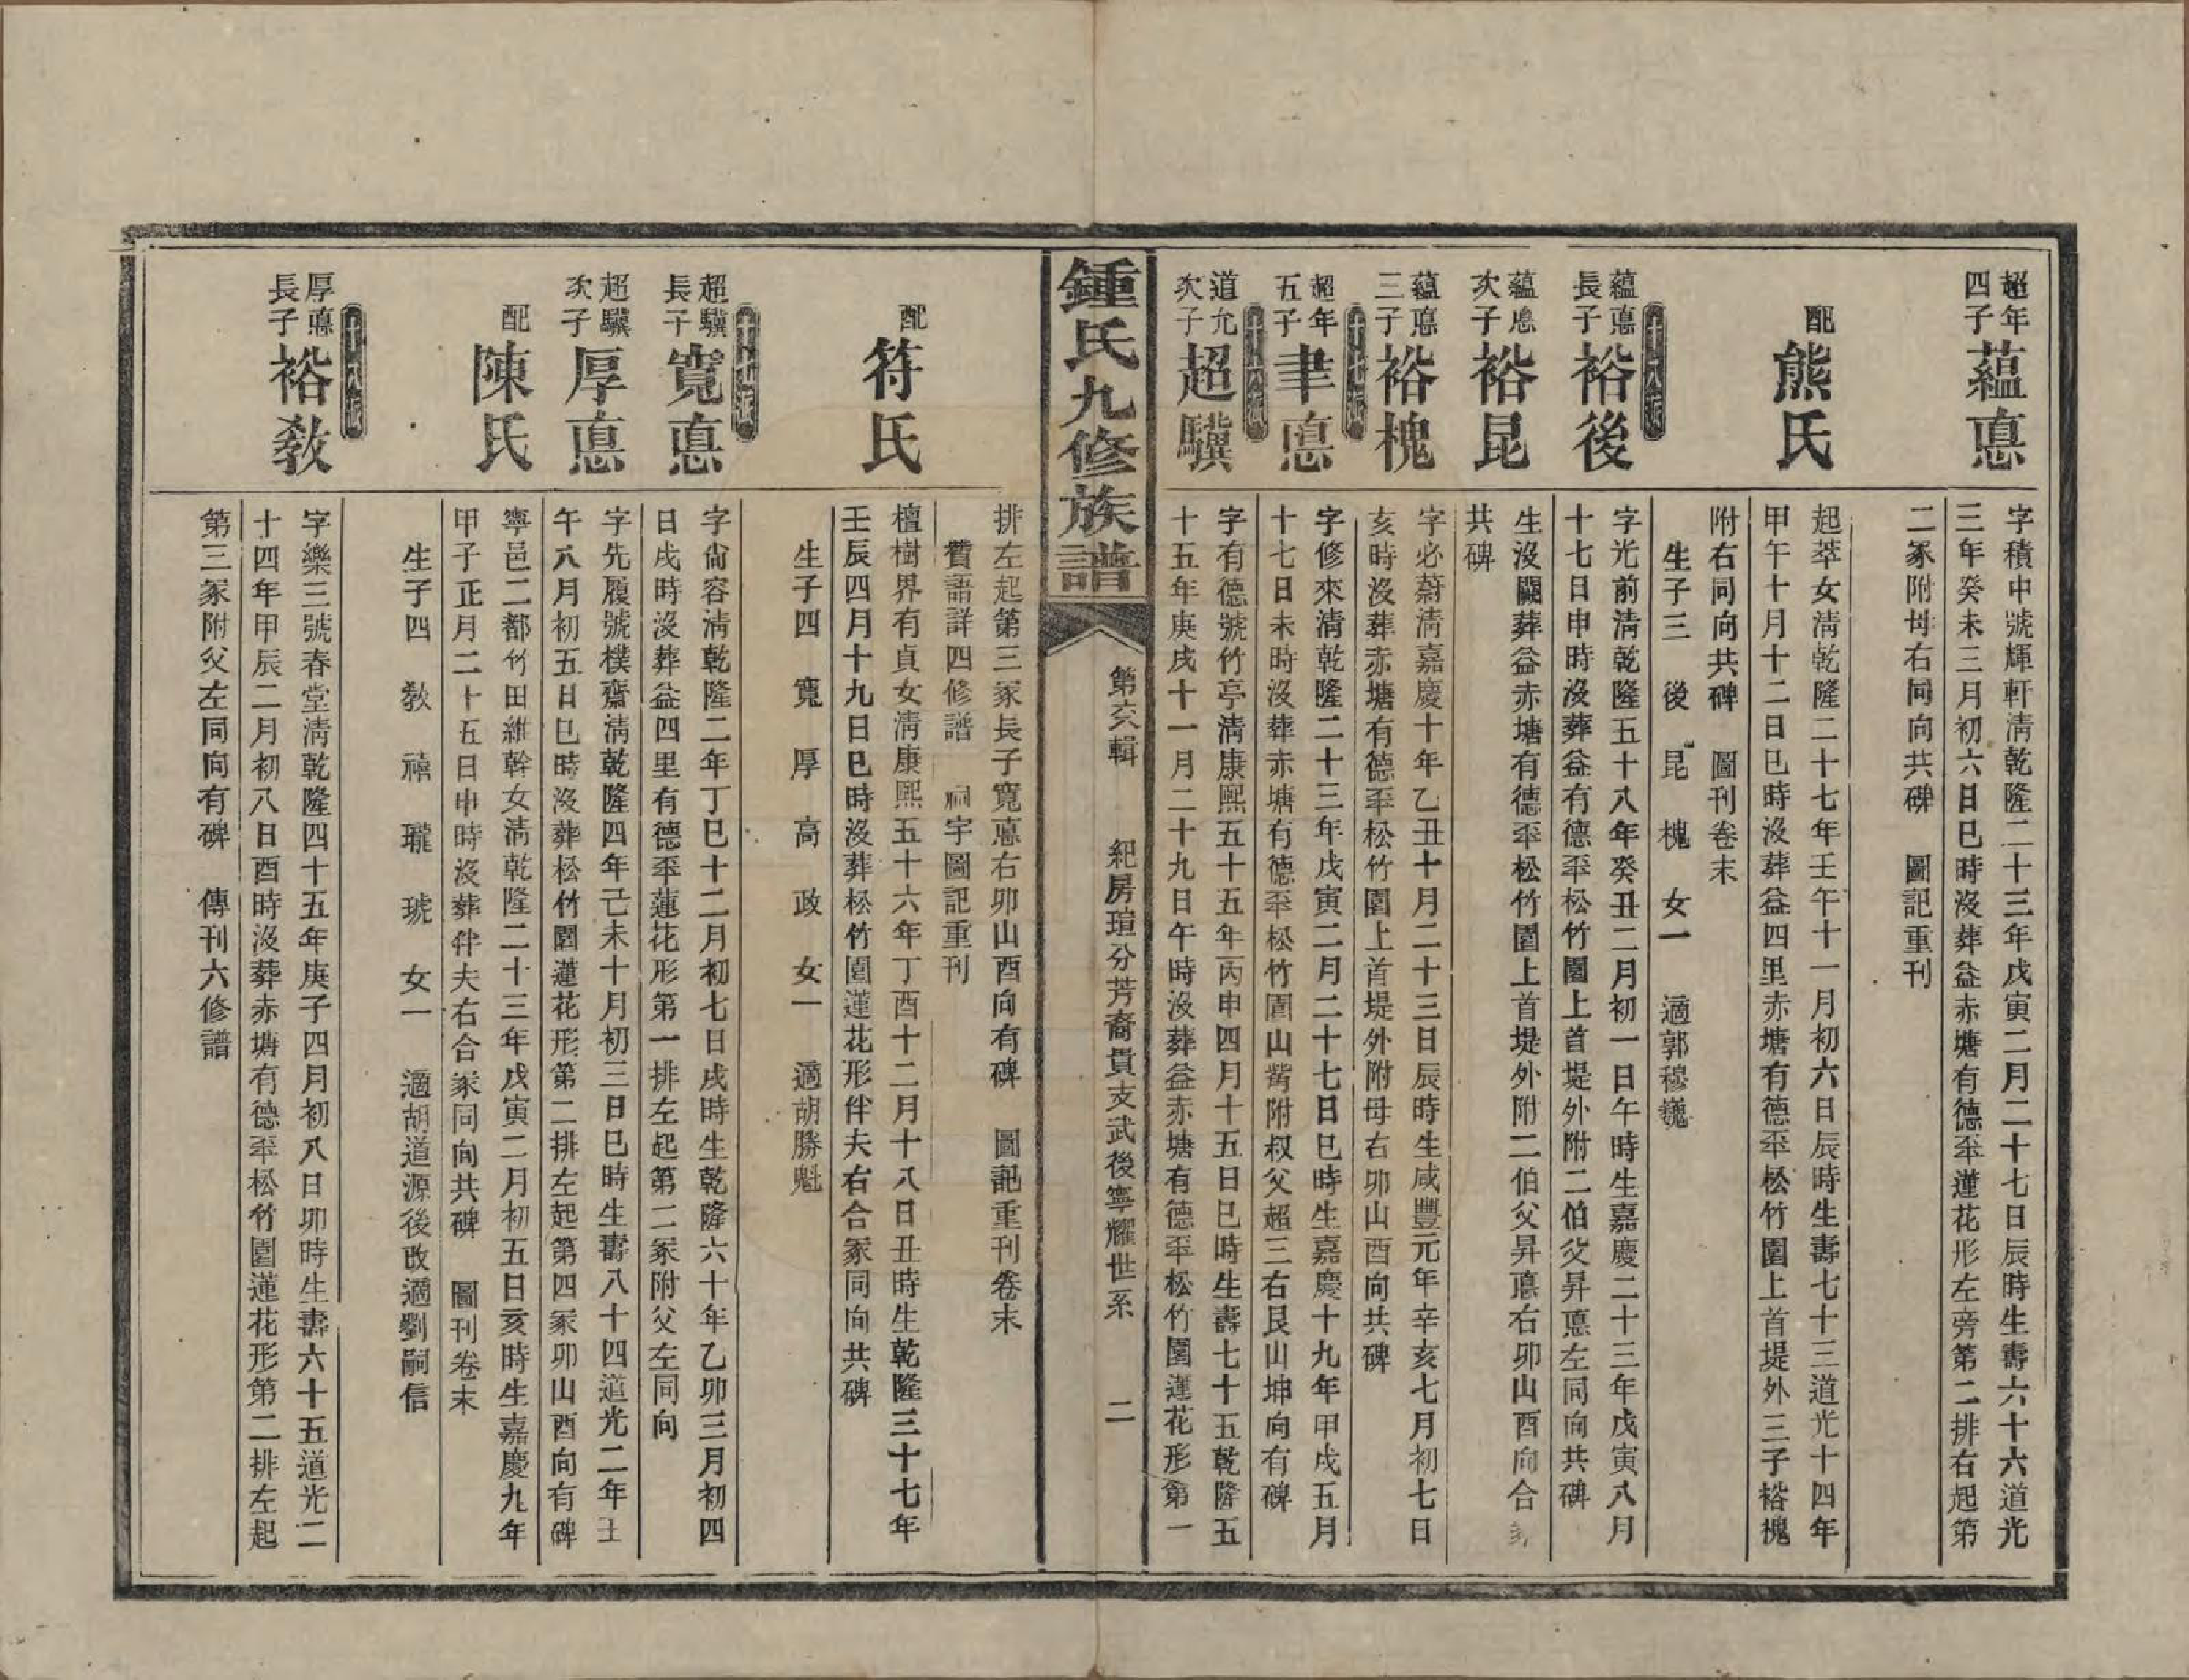 超年
四子
蘊悳
字積中號輝軒淸乾隆二十三年戊寅二月二十七日辰時生壽六十六道光
三年癸未三月初六日巳時沒葬益赤塘有德坙蓮花形左旁第二排右起第
二冢附母右同向共碑　圖記重刊
配
熊氏
起萃女淸乾隆二十七年壬午十一月初六日辰時生壽七十三道光十四年
甲午十月十二日巳時沒葬益四里赤塘有德坙松竹園上首堤外三子裕槐
附右同向共碑　圖刊卷末
生子三　後　昆　槐　女一　適郭穆巍
十八派
蘊悳
長子
裕後
字光前淸乾隆五十八年癸丑二月初一日午時生嘉慶二十三年戊寅八月
十七日申時沒葬益有德坙松竹園上首堤外附二伯父昇悳左同向共碑
蘊悳
次子
裕昆
生沒闕葬益赤塘有德坙松竹園上首堤外附二伯父昇悳右卯山酉向合
共碑
蘊悳
三子
裕槐
字必蔚淸嘉慶十年乙丑十月二十三日辰時生咸豐元年辛亥七月初七日
亥時沒葬赤塘有德坙松竹園上首堤外附母右卯山酉向共碑
十七派
超年
五子
聿悳
字修來淸乾隆二十三年戊寅二月二十七日巳時生嘉慶十九年甲戌五月
十七日未時沒葬赤塘有德坙松竹園山觜附叔父超三右艮山坤向有碑
十六派
道允
次子
超驥
字有德號竹亭淸康熙五十五年丙申四月十五日巳時生壽七十五乾隆五
十五年庚戌十一月二十九日午時沒葬益赤塘有德坙松竹園蓮花形第一
鍾氏九修族譜
第六輯　紀房瑄分芳裔貫支武後寧耀世系　二
排左起第三冢長子寬悳右卯山酉向有碑　圖記重刊卷末
贊語詳四修譜　祠宇圖記重刊
配
符氏
檀樹界有貞女淸康熙五十六年丁酉十二月十八日丑時生乾隆三十七年
壬辰四月十九日巳時沒葬松竹園蓮花形伴夫右合冢同向共碑
生子四　寬　厚　高　政　女一　適胡勝魁
十七派
超驥
長子
寬悳
字尙容淸乾隆二年丁巳十二月初七日戌時生乾隆六十年乙卯三月初四
日戌時沒葬益四里有德坙蓮花形第一排左起第二冢附父左同向
超驥
次子
厚悳
字先履號樸齋淸乾隆四年己未十月初三日巳時生壽八十四道光二年壬
午八月初五日巳時沒葬松竹園蓮花形第二排左起第四冢卯山酉向有碑
配
陳氏
寧邑二都竹田維幹女淸乾隆二十三年戊寅二月初五日亥時生嘉慶九年
甲子正月二十五日申時沒葬伴夫右合冢同向共碑　圖刊卷末
生子四　敎　禧　瓏　琥　女一　適胡道源後改適劉嗣信
十八派
厚悳
長子
裕敎
字樂三號春堂淸乾隆四十五年庚子四月初八日卯時生壽六十五道光二
十四年甲辰二月初八日酉時沒葬赤塘有德坙松竹園蓮花形第二排左起
第三冢附父左同向有碑　傳刊六修譜